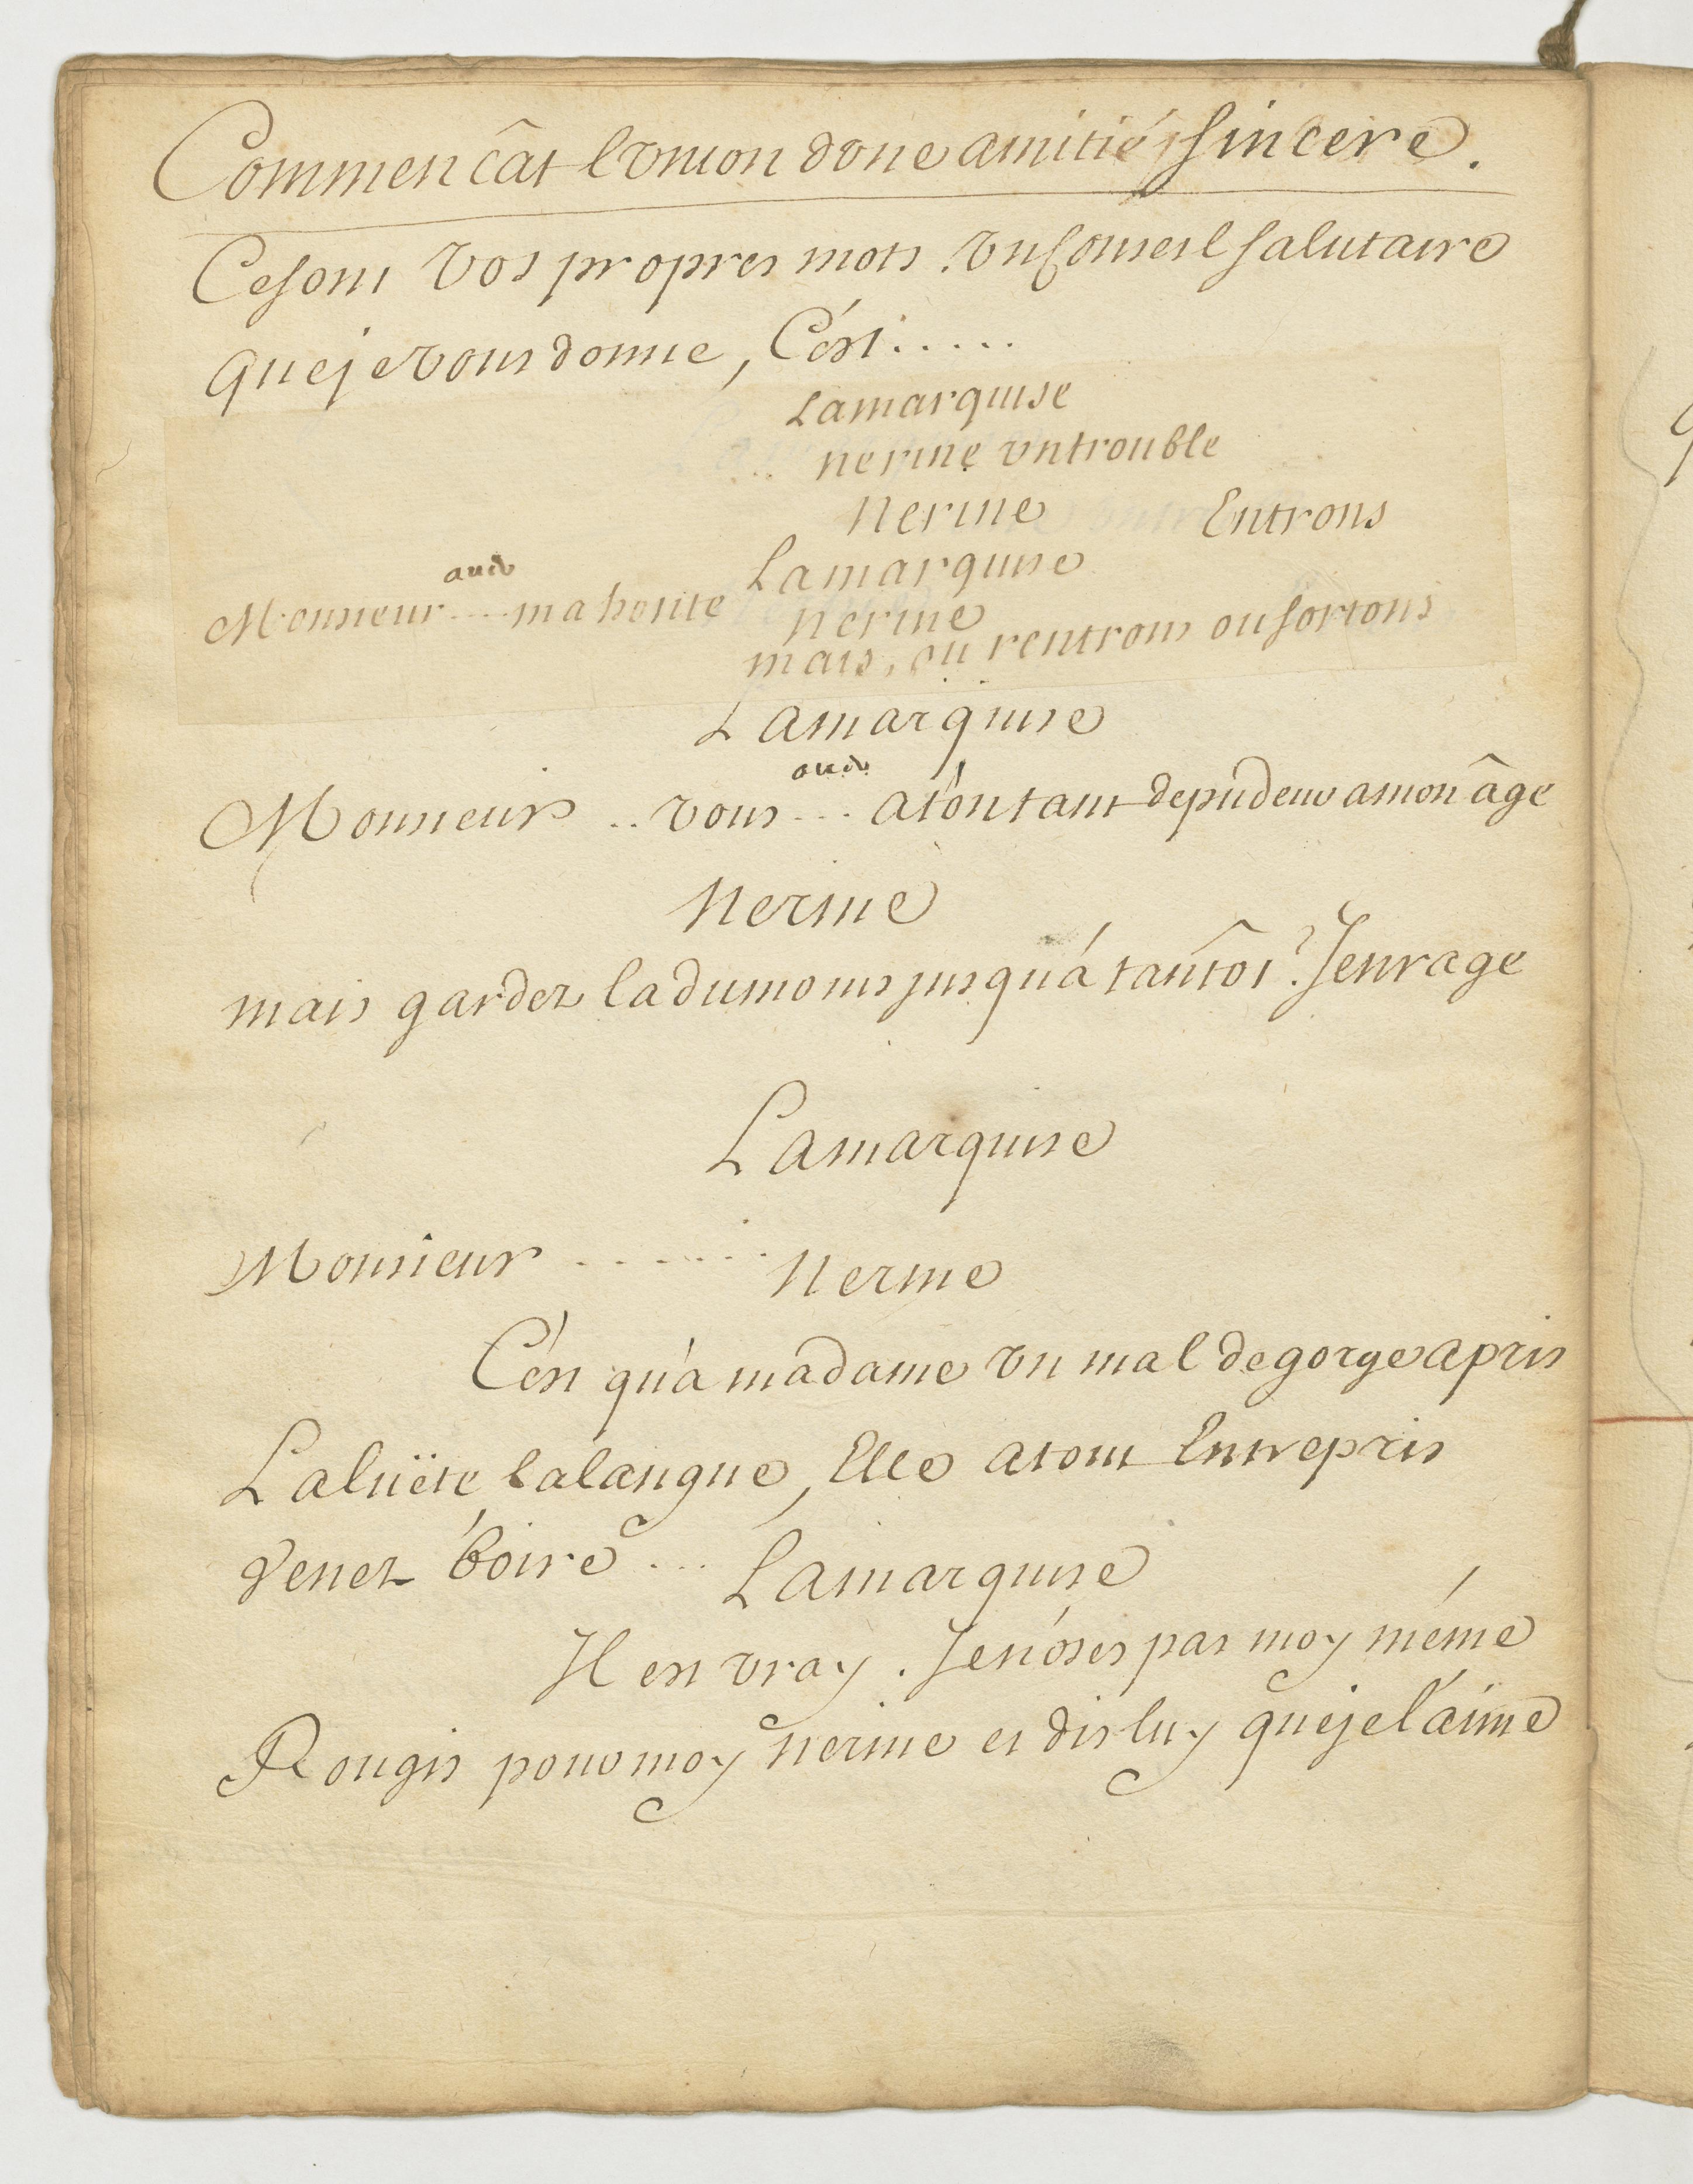 Commencât l'vnion d'one amitié sincere.
Ce sont vos propres mots. vn Conseil salutaire
que je vous donne, C'est.....
Lamarquise
nerine vn trouble
Nerine Entrons
Lamarquise
Monsieur.... ma honte
nerine
mais, ou rentrons ou sortons
Lamarquise
Monsieur .. vous ... at'on tant de pudeur a mon âge
Nerine
mais gardez la du moins jusqu'á tantôt? J'enrage
Lamarquise
Monsieur ......
Nerine
C'est qu'a madame vn mal de gorge a pris
La lüéte la langue, Elle a tout Entrepris
Venez boire ...
Lamarquise
Il est vray. Je n'óses pas moy méme
Rougis pour moy nerine et dis luy que je l'aime